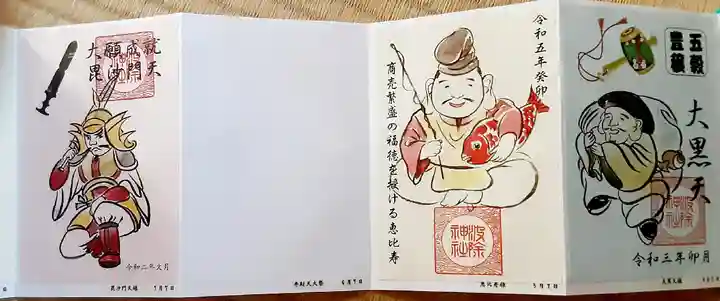 大願成就
毘沙門天
令和二年文月
毘沙門天様 7月7日
弁財天大祭 6月7日
令和五年癸卯
商売繁盛の福徳を授ける恵比寿
波除
神社
恵比寿様 5月7日
五穀
豊穣
大黒天
波除
神社
令和三年卯月
大黒天様